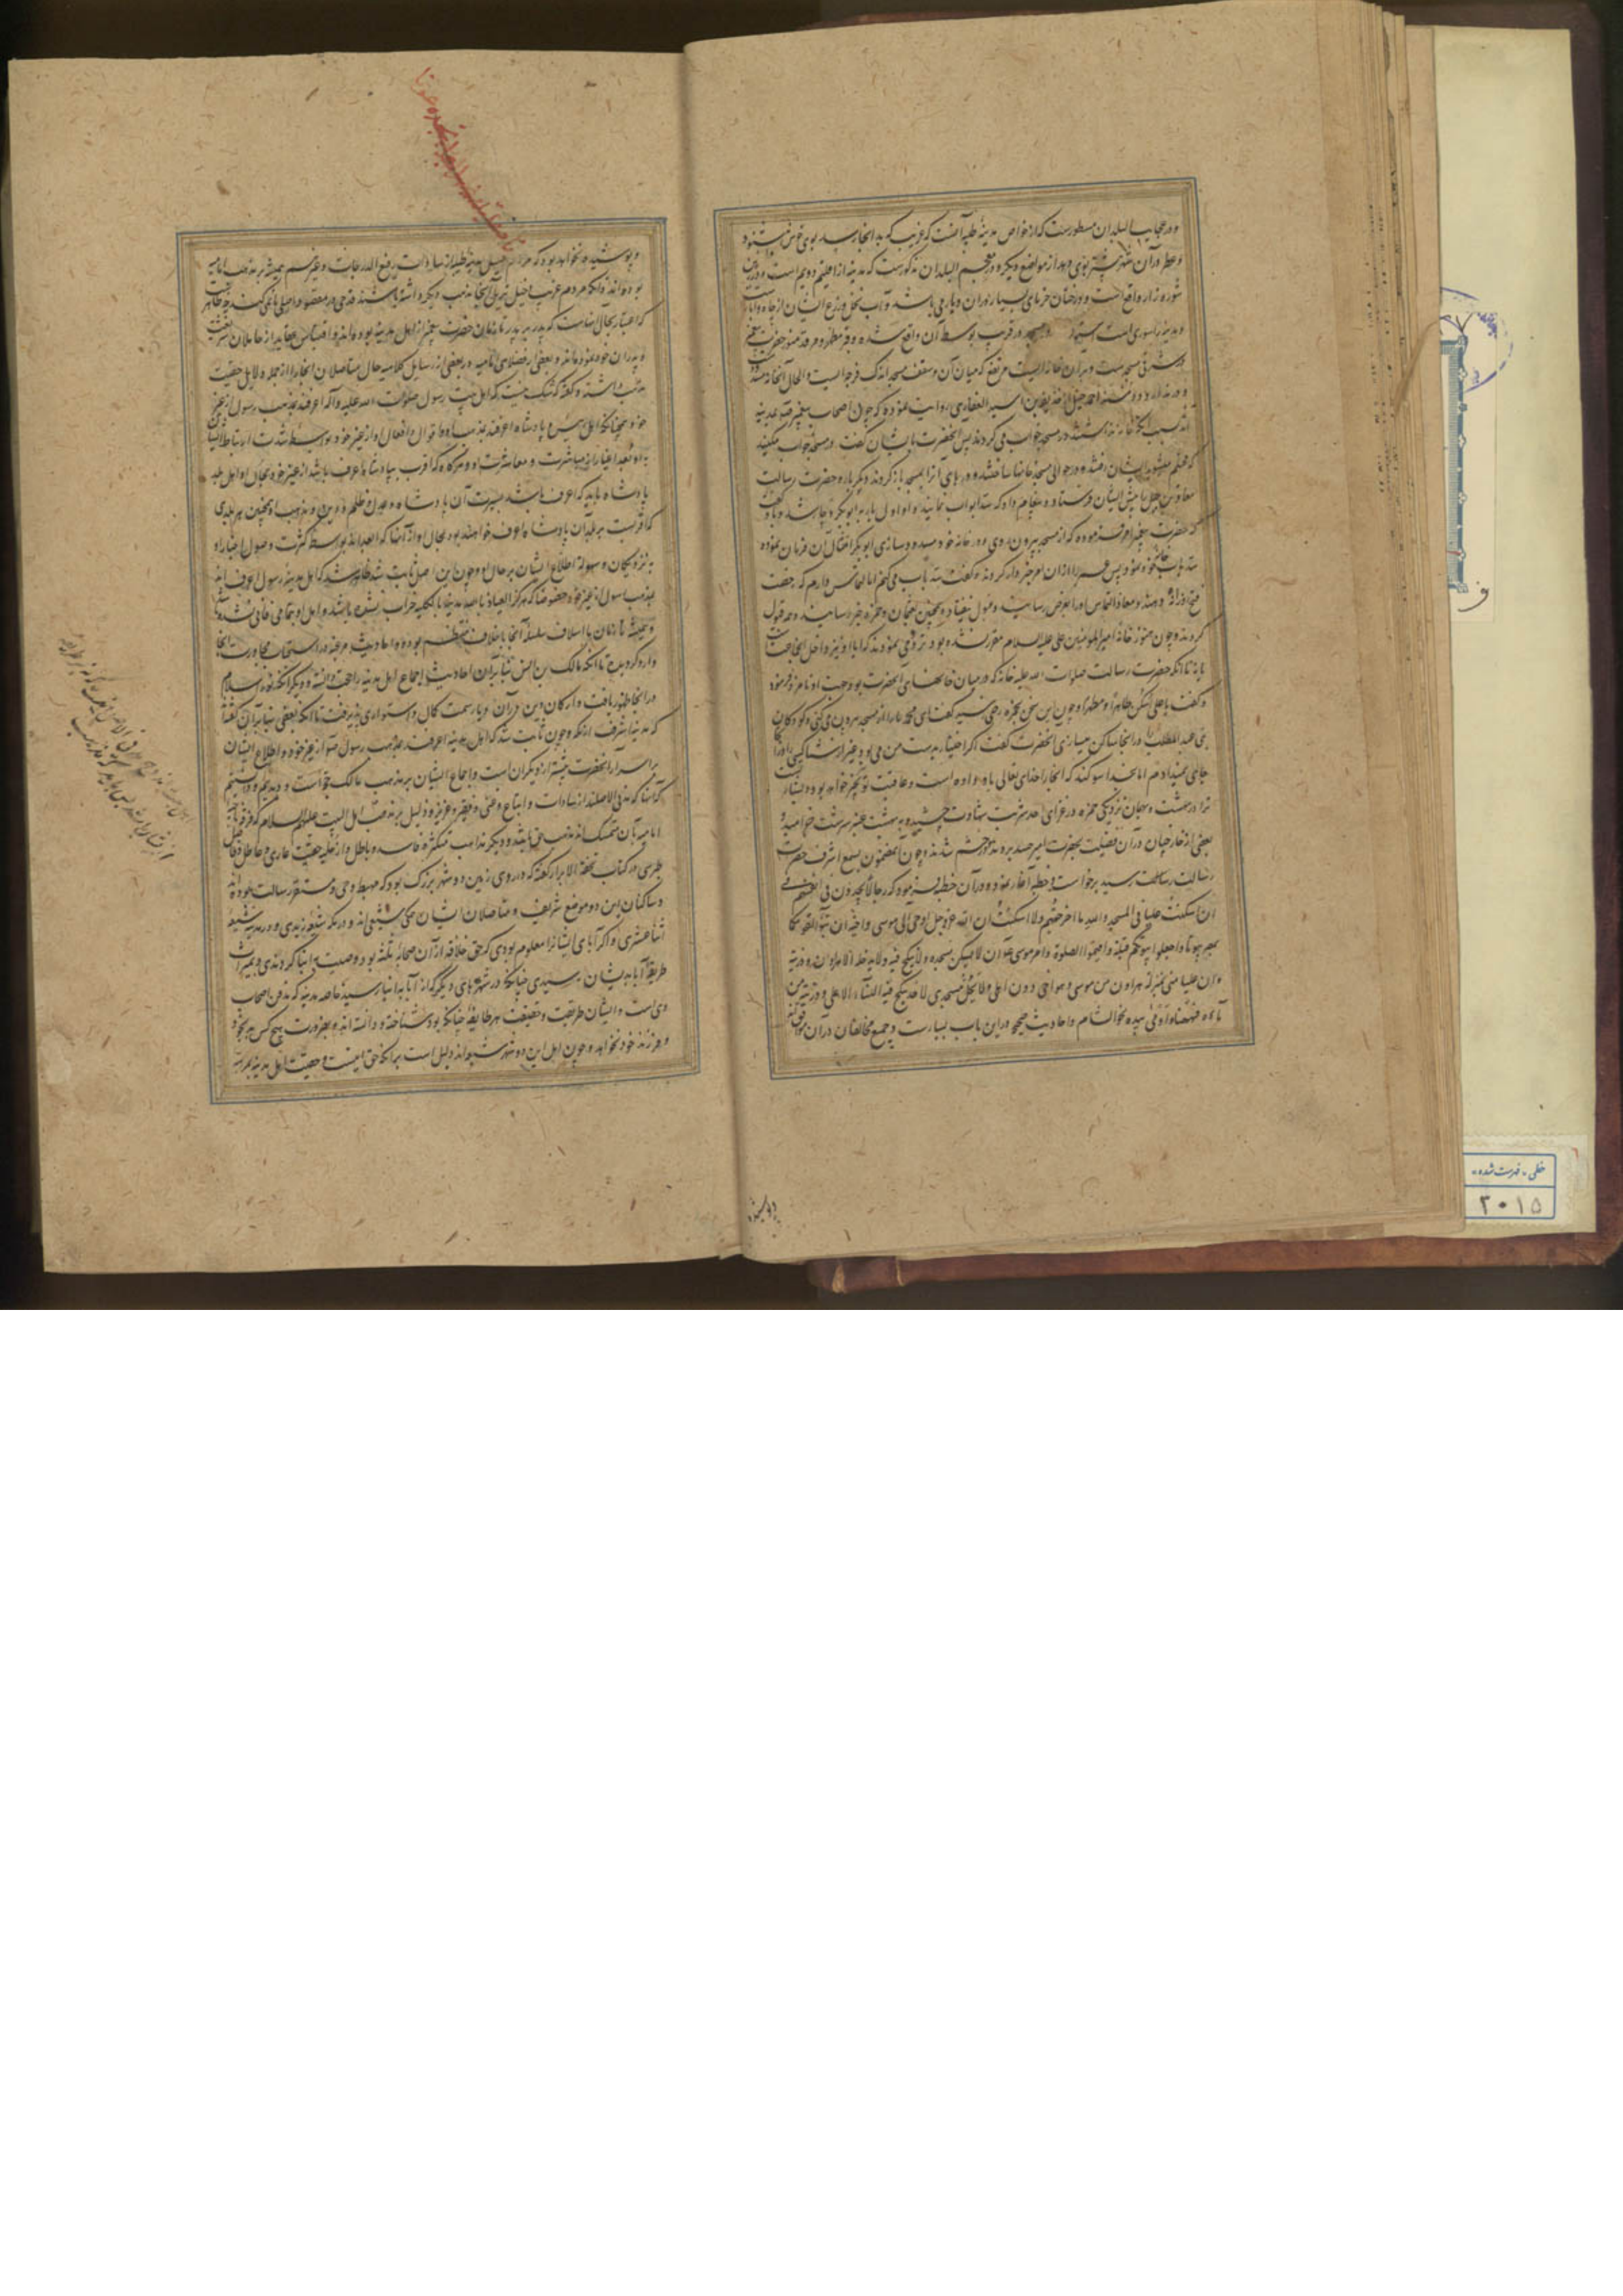 و در عجایب البلدان مسطورست که از خواص مدینه طیبه آنست که غریب که به آنجا رسد بوی خوش شنود
و عطر در آن شهر بیشتر بوی دهد از مواضع دیگر و در معجم البلدان مذکورست که مدینه از اقلیم دویم است و در زمین
شوره زار واقع است و درختان خرمای بسیار در آن دیار می باشد و آب نخل و زرع ایشان از چاه
و مدینه را سوری است و مسجد در قرب بوسط آن واقع شده و قبر مطهر و مرقد منور حضرت پیغمبر
در شرقی مسجد است و بر آن خانه ایست مرتفع که میان آن و سقف مسجد اندک فرجه ایست والحال آنخانه
احمد حنبل از حذیفة بن اسید الغفاری روایت نموده که چون اصحاب پیغمبر بمدینه
آمدند بسبب آنکه خانه نداشتند در مسجد خواب می کردند پس آنحضرت بایشان گفت در مسجد خواب مکنید
که محتلم میشوید ایشان رفتند و در حوالی مسجد خانها ساختند و درهای آنرا بمسجد باز کردند دیگر باره حضرت رسالت
معاذ بن جبل را پیش ایشان فرستاد و پیغام داد که سد ابواب نمایند و او اول بار به ابو بکر دچار شد و با او گفت
که حضرت پیغمبر امر فرموده که از مسجد بیرون روی و در خانه خود مسدود سازی ابو بکر امتثال آن فرمان نموده
سد باب خانه خود نمود پس عمر را از آن امر خبردار کردند گفت سد باب می کنم اما التماس دارم که رخصت
فتح روزنه دهند و معاذ التماس او را بعرض رسانید و قبول نیفتاد و همچنین بعثمان و حمزه خبر رسانیدند و همه قبول
کردند و چون هنوز خانه امیر المومنین علی علیه السلام مقرر نشده بود تردد می نمودند که آیا او نیز داخل آنجماعت
یا نه تا آنکه حضرت رسالت صلوات الله علیه خانه که در میان خانهای آنحضرت بود جهت او نامزد فرمود
و گفت یا علی اسکن طاهرا و مطهرا و چون این سخن بحمزه رضی رسید گفت ای محمد ما را از مسجد بیرون می کنی و کودکان
بنی عبد المطلب را در آنجا ساکن میسازی آنحضرت گفت اگر اختیار بدست من می بود غیر از شما کسی را در آنجا
جای نمیدادم اما بخدا سوگند که آنجا را خدای تعالی باو داده است و عاقبت تو بخیر خواهد بود و بشارت
ترا در بهشت و همان نزدیکی حمزه در غزای احد شربت شهادت چشیده به بهشت عنبر سرشت خرامید و
بعضی از خارجیان در آن فضیلت بحضرت امیر حسد بردند و در خشم شدند و چون آن مضمون بسمع اشرف حضرت
رسالت رسید برخاست و خطبه آغاز نموده و در آن خطبه فرمود که رجالا یجدون فی انفسهم
ان اسکنت علیا فی المسجد والله ما اخرجتهم ولا اسکنت ان الله عز وجل اوحی الی موسی واخیه ان تبوءا لقومکما
بمصر بیوتا واجعلوا بیوتکم قبلة واقیموا الصلوة وامر موسی ان لا یسکن مسجده ولا ینکح فیه ولا یدخله الا هارون وذریته
وان علیا منی بمنزلة هارون من موسی وهو اخی دون اهلی ولا یحل مسجدی لاحد ینکح فیه النساء الا علی وذریته فمن
ساءه فههنا واومی بیده نحو الشام و احادیث صحیحه در این باب بسیارست و جمیع مخالفان در آن موافق‌اند
و پوشیده
و پوشیده نخواهد بود که مردم اصیل مدینه طیبه از سادات رفیع الدرجات و غیرهم همیشه بر مذهب امامیه
بوده اند و اگر مردم غریب دخیل نزیل آنجا مذهب دیگر داشته باشند قدحی در مقصود اصلی ما نمی کند چه ظاهرست
که اعتبار بحال جماعت که پدر بر پدر تا زمان حضرت پیغمبر از اهل مدینه بوده اند و اقتباس عقاید از حاملان شریعت
و پدران خود نموده اند و بعضی از فضلای امامیه در بعضی از رسایل کلامیه حال متاصلان آنجا را از جمله دلایل حقیقت
مذهب داشته و گفته که شک نیست که اهل بیت رسول صلوات الله علیه و آله اعرفند بمذهب رسول از غیر
خود همچنانکه اهل بیت پادشاه اعرفند بمذهب او و اقوال و افعال او از غیر خود بواسطه شدت ارتباط ایشان
باو و بعد اغیار از مباشرت و معاشرت او و هرگاه که اقرب بپادشاه اعرف باشد از غیر خود بحال او اهل بلد
پادشاه باید که اعرف باشند بسیرت آن پادشاه و عدل و ظلم و دین و مذهب او همچنین هر بلدی
که اقربست بر بلدان پادشاه اعرف خواهند بود بحال او از آنها که ابعداند بواسطه کثرت وصول اخبار او
به نزدیکان و سهولة اطلاع ایشان بر حال او و چون این اصل ثابت شد ظاهر شد که اهل مدینه رسول اعرف اند
بمذهب رسول از غیر خود خصوصا که هرگز العیاذ بالله مدینه بالکلیه خراب نشده باشد و اهل او بتمامی فانی نشده
و همیشه تا زمان ما اسلاف سلسله آنجا باخلاف منتظم بوده و احادیث مرغبه در استحباب مجاورت آنجا
وارد گردیده تا آنکه مالک بن انس بنابر آن احادیث اجماع اهل مدینه را حجت دانسته و دیگر آنکه قوه اسلام
در آنجا ظهور یافت و ارکان دین در آن دیار سمت کمال و استواری پذیرفت تا آنکه بعضی بنابر آن گفته‌اند
که مدینه اشرف از مکه و چون ثابت شد که اهل مدینه اعرفند بمذهب رسول ص از غیر خود و اطلاع ایشان
بر اسرار آنحضرت بیشتر از دیگران است و اجماع ایشان بر مذهب مالک حجة است و دیدیم و دانستیم
که آنها که مدنی الاصل‌اند از سادات و اتباع و غنی و فقیر و عزیز و ذلیل بر مذهب اهل البیت علیهم السلام که فرقه ناجیه
امامیه بآن متمسک اند مذهب حق باشد و دیگر مذاهب متکثره فاسد و باطل و از حلیه حقیت عاری و عاطل
طبرسی در کتاب تحفة الابرار گفته که در روی زمین دو شهر بزرگ بود که مهبط وحی و مستقر رسالت بوده‌اند
و ساکنان این دو موضع شریف و متاصلان ایشان همگی شیعی‌اند و در مکه شیعه زیدی و در مدینه شیعه
اثنا عشری و اگر آبای ایشانرا معلوم بودی که حق خلافه از آن صحابه ثلثه بود وصیت بابنا کردندی و بمیراث
طریقه آبا بدیشان رسیدی چنانکه در شهرهای دیگر که از آبا به ابنا رسید خاصه مدینه که مدفن اصحاب
وی است و ایشان طریقت و حقیقت هر طایفه چنانکه بود شناخته و دانسته اند و بضرورت هیچ کس بد بخود
و فرزند خود نخواهد و چون اهل این دو شهر شیعه‌اند دلیل است بر آنکه حق اینست و حقیت اهل مدینه بمرتبه
خطی - فهرست شده -
۲۰۱۵